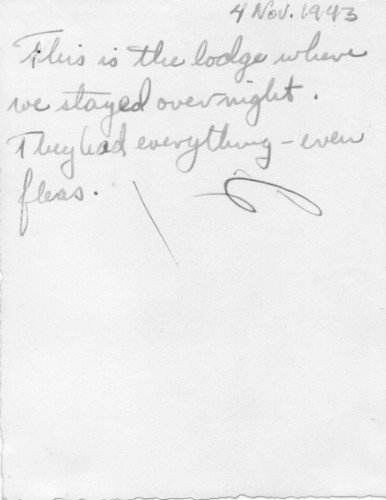 4 Nov. 1943
This is the lodge where
we stayed overnight.
They had everything - even
fleas.